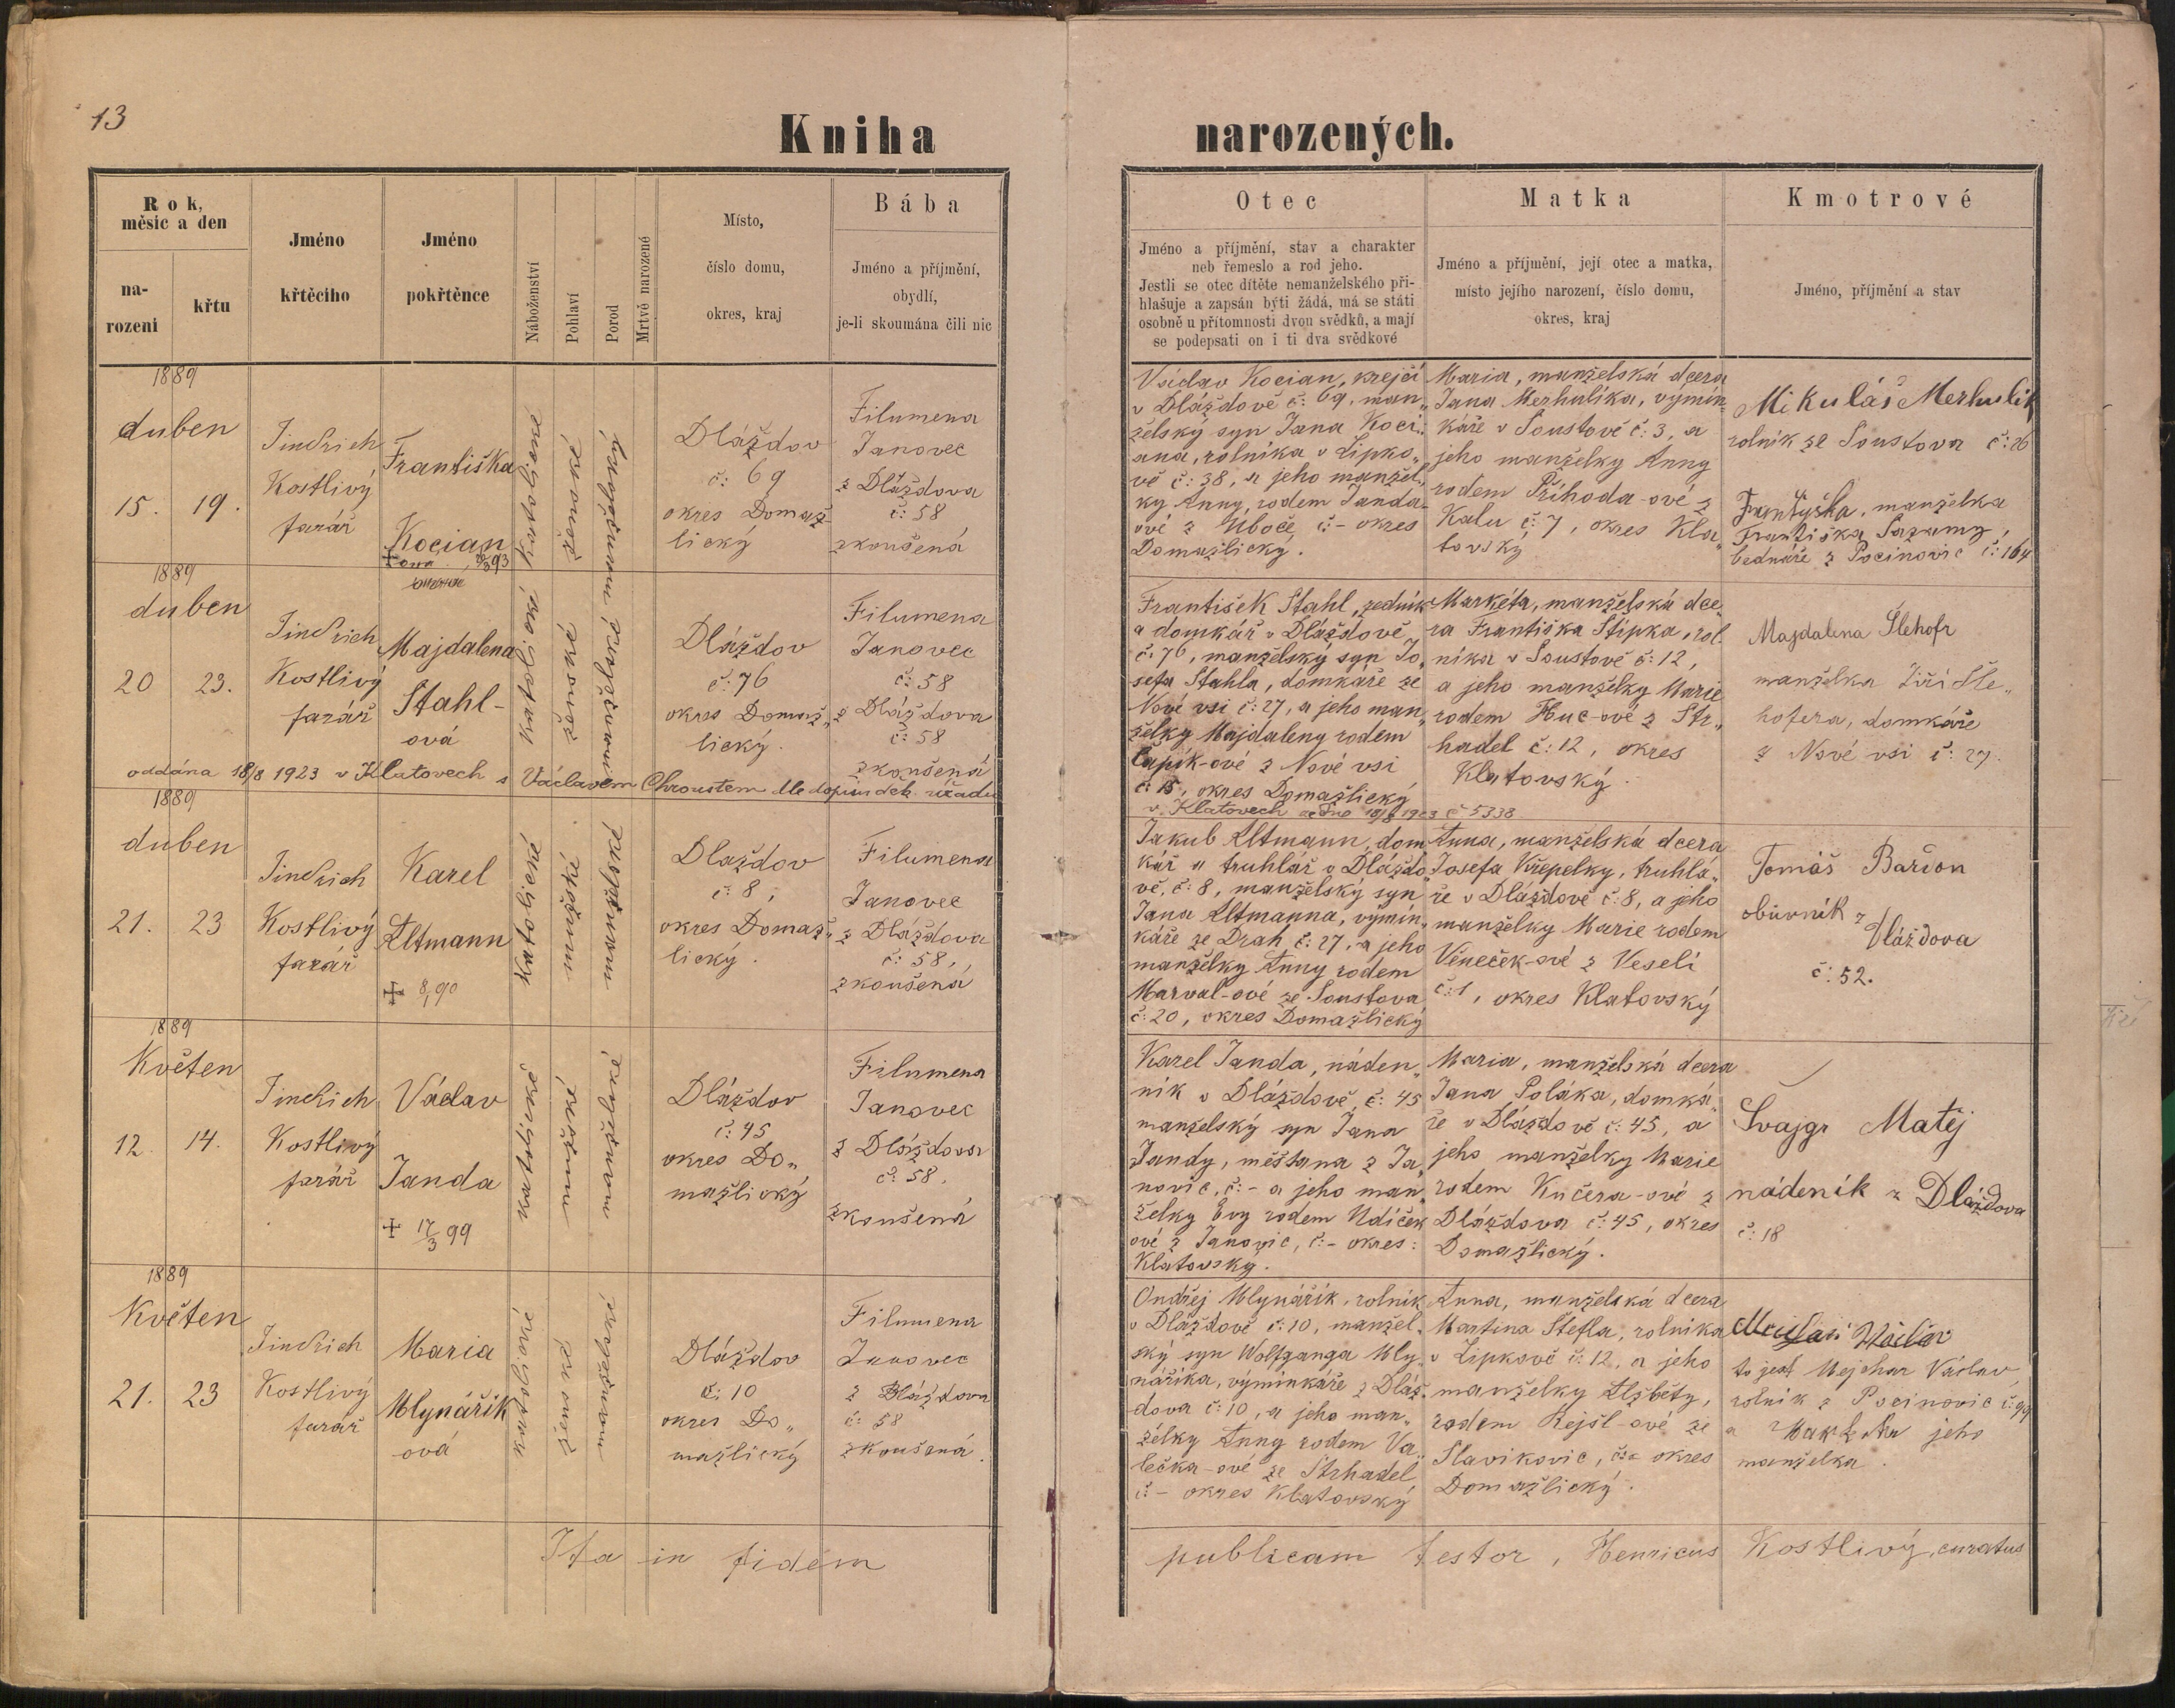 13
Kniha narozených.
Rok,
měsíc a den
na-
rozeni
křtu
Jméno
křtěcího
Jméno
pokřtěnce
Náboženství
Pohlaví
Porod
Mrtvě narozené
Místo,
číslo domu,
okres, kraj
Bába
Jméno a příjmění,
obydlí,
je-li skoumána čili nic
Otec
Jméno a příjmění, stav a charakter
neb řemeslo a rod jeho.
Jestli se otec dítěte nemanželského při-
hlašuje a zapsán býti žádá, má se státi
osobně u přítomnosti dvou svědků, a mají
se podepsati on i ti dva svědkové
Matka
Jméno a příjmění, její otec a matka,
místo jejího narození, číslo domu,
okres, kraj
Kmotrové
Jméno, příjmění a stav
1889
duben
15. 19.
Jindřich
Kostlivý
farář
Františka
Kocian
ova
katolické
ženské
manželský
Dláždov
č: 69
okres Domaž-
lický
Filumena
Janovec
z Dláždova
č: 58
zkoušená
Václav Kocian, krejčí
v Dláždově č: 69, man„
želský syn Jana Koci„
ana, rolníka v Lipko„
vě č: 38, a jeho manžel„
ky Anny, rodem Janda-
ové z Uboče, č:- okres
Domažlický.
Maria, manželská dcera
Jana Merhulíka, výmin„
káře v Soustově č: 3, a
jeho manželky Anny
rodem Příhoda-ové z
Kalu č: 7, okres Kla„
tovský
Mikuláš Merhulik
rolník ze Soustova č: 16
Frantyška, manželka
Františka Sazamy,
bednáře z Pocinovic č: 164
1889
duben
20 23.
Jindřich
Kostlivý
farář
Majdalena
Stahl-
ová
katolické
ženské
manželský
Dláždov
č: 76
okres Domaž„
lický.
Filumena
Janovec
č: 58
z Dláždova
č: 58
zkoušená
František Stahl, zedník
a domkář v Dláždově
č: 76, manželský syn Jo„
sefa Stahla, domkáře ze
Nové vsi č: 27, a jeho man„
želky Majdaleny rodem
Čapík-ové z Nové vsi
č: 15, okres Domažlický
Markéta, manželská dce„
ra Františka Stípka, rol.
níka v Soustově č: 12,
a jeho manželky Marie
rodem Huc-ové z Str„
hadel č: 12, okres
Klatovský.
Majdalena Šlehofr
manželka Jiří Šle„
hofera, domkáře
z Nové vsi č: 27.
oddána 18/8 1923 v Klatovech s Václavem Chroustem dle dopisu děk. úřadu
v Klatovech ze dne 18/8 1923 č 5338
1889
duben
21. 23
Jindřich
Kostlivý
farář
Karel
Altmann
+ 8/90
katolické
mužské
manželský
Dlaždov
č: 8,
okres Domaž„
lický.
Filumena
Janovec
z Dláždova
č: 58,
zkoušená
Jakub Altmann, dom
kář a truhlář v Dláždo„
vě, č: 8, manželský syn
Jana Altmanna, výmin„
káře ze Drah, č: 27, a jeho
manželky Anny rodem
Marval-ové ze Soustova
č: 20, okres Domažlický
Anna, manželská dcera
Josefa Křepelky, truhlá„
ře v Dláždově č: 8, a jeho
manželky Marie rodem
Věneček-ové z Veselí
č: 1, okres Klatovský
Tomáš Bařťon
obuvník z
Dláždova
č: 52.
1889
Květen
12. 14.
Jindřich
Kostlivý
farář
Václav
Janda
+ 17/3 99
katolické
mužské
manželský
Dláždov
č: 45
okres Do„
mažlický
Filumena
Janovec
z Dláždova
č: 58.
zkoušená
Karel Janda, náden„
ník v Dláždově, č: 45
manželský syn Jana
Jandy, měšťana z Ja„
novic, č:- a jeho man„
želky Evy rodem Udíček
ové z Janovic, č:- okres:
Klatovský.
Maria, manželská dcera
Jana Poláka, domká„
ře v Dláždově č: 45, a
jeho manželky Marie
rodem Kučera-ové z
Dláždova č: 45, okres
Domažlický.
Švajgr Matěj
nádeník z Dláždova
č: 18
1889
Květen
21. 23
Jindřich
Kostlivý
farář
Maria
Mlynářík
ová
katolické
ženské
manželský
Dláždov
č: 10
okres Do„
mažlický
Filumena
Janovec
z Dláždova
č: 58
zkoušená.
Ondřej Mlynářík, rolník
v Dláždově č: 10, manžel„
ský syn Wolfganga Mly„
náříka, výminkáře z Dláž„
dova č: 10, a jeho man„
želky Anny rodem Va„
lečka-ové ze Strhadel
č:- okres Klatovský
Anna, manželská dcera
Martina Štefla, rolníka
v Lipkově č: 12, a jeho
manželky Alžběty,
rodem Rejšl-ové ze
Slavikovic, č:- okres
Domažlický.
Václav
to jest Mejchar Václav,
rolník z Pocinovic č: 99
a Markéta jeho
manželka.
Ita in fidem publicam testor, Henricus Kostlivý, curatus